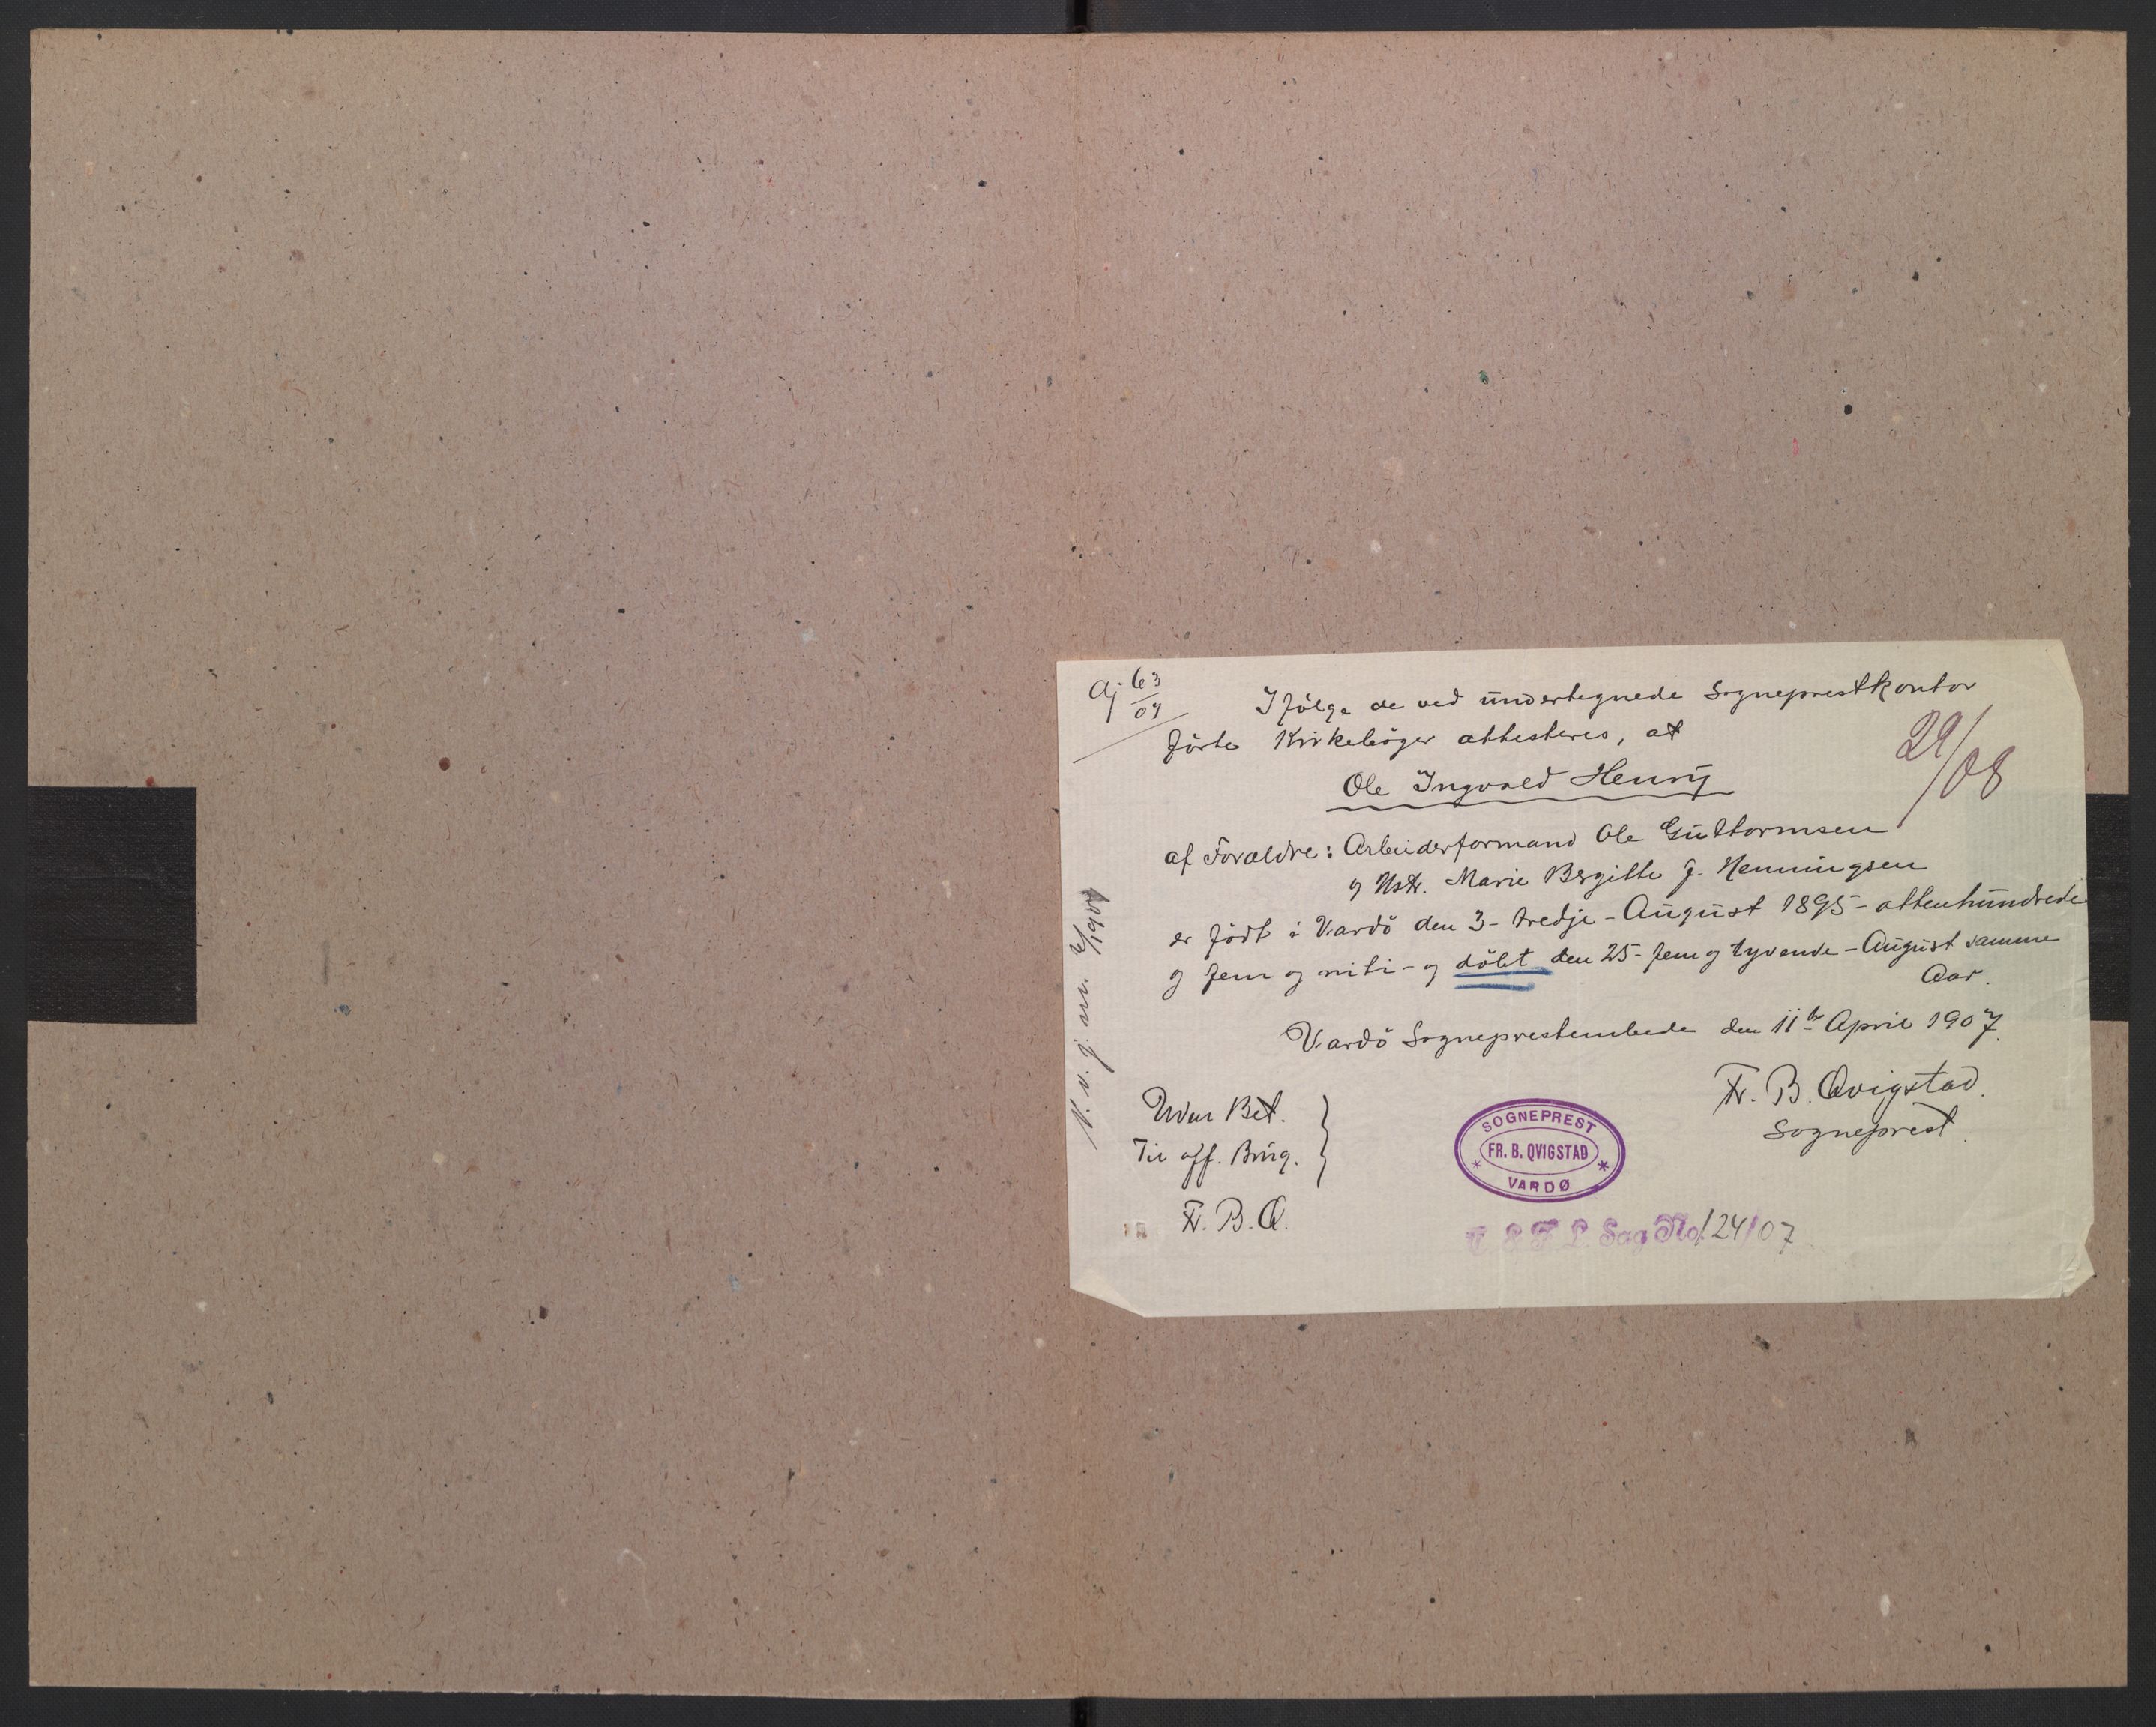 Aj 63/07
Ifölge de ved undertegnede Sogneprestkontor
förte Kirkebøger attesteres, at
29/08
Ole Ingvald Henry
af Forældre: Arbeiderformand Ole Guttormsen
og Hstr. Marie Bergitte f. Henningsen
er födt i Vardö den 3- tredje - August 1895 - attenhundrede
og fem og niti - og döbt den 25- fem og tyvende - August samme
Aar.
Vardö Sogneprestembede den 11te April 1907.
Fr. B. Qvigstad.
Sogneprest.
Uden Bet.
Til off. Brug.
Fr. B. Q.
SOGNEPREST
* FR. B. QVIGSTAD *
VARDØ
Sag No 124/07